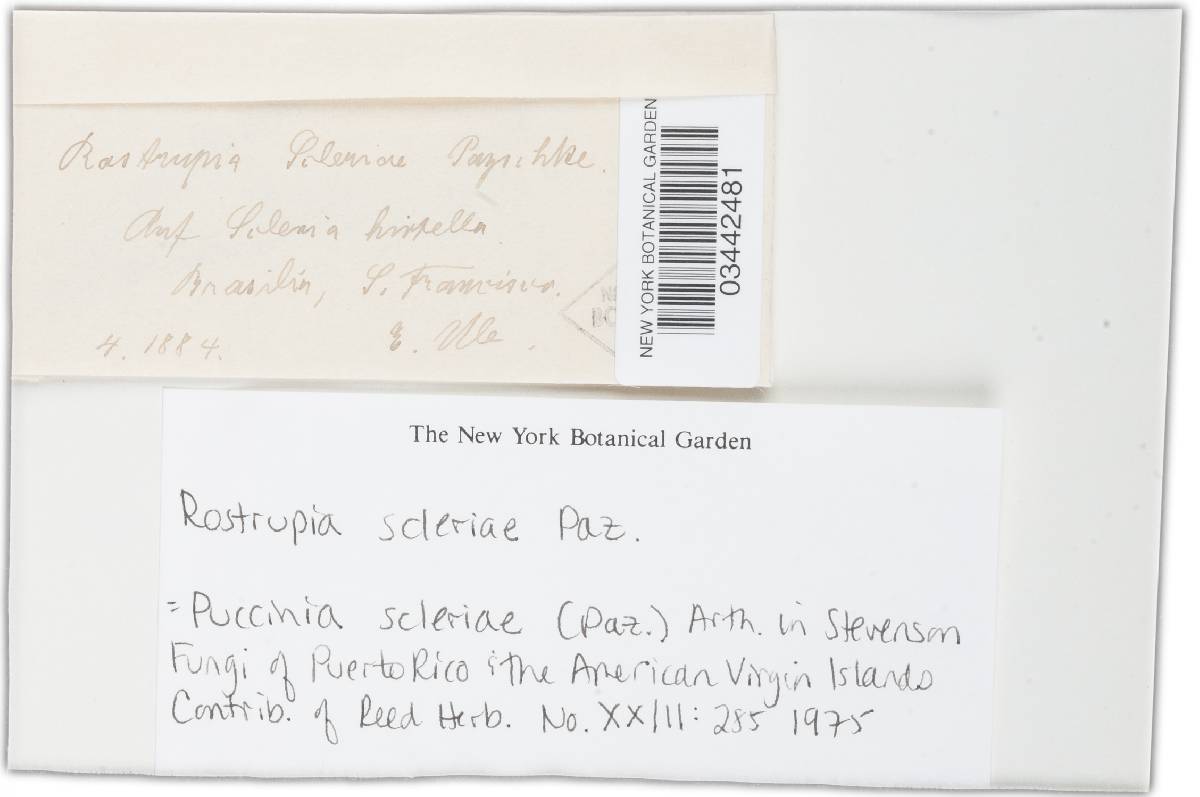 Rostrupia Scleriae Pazschke.
Auf Scleria hirtella
Brasilien, S. Francisco.
4. 1884. E. Ule.
NEW YORK BOTANICAL GARDEN
03442481
The New York Botanical Garden
Rostrupia scleriae Paz.
= Puccinia scleriae (Paz.) Arth. in Stevenson
Fungi of Puerto Rico & the American Virgin Islands
Contrib. of Reed Herb. No. XXIII: 285 1975